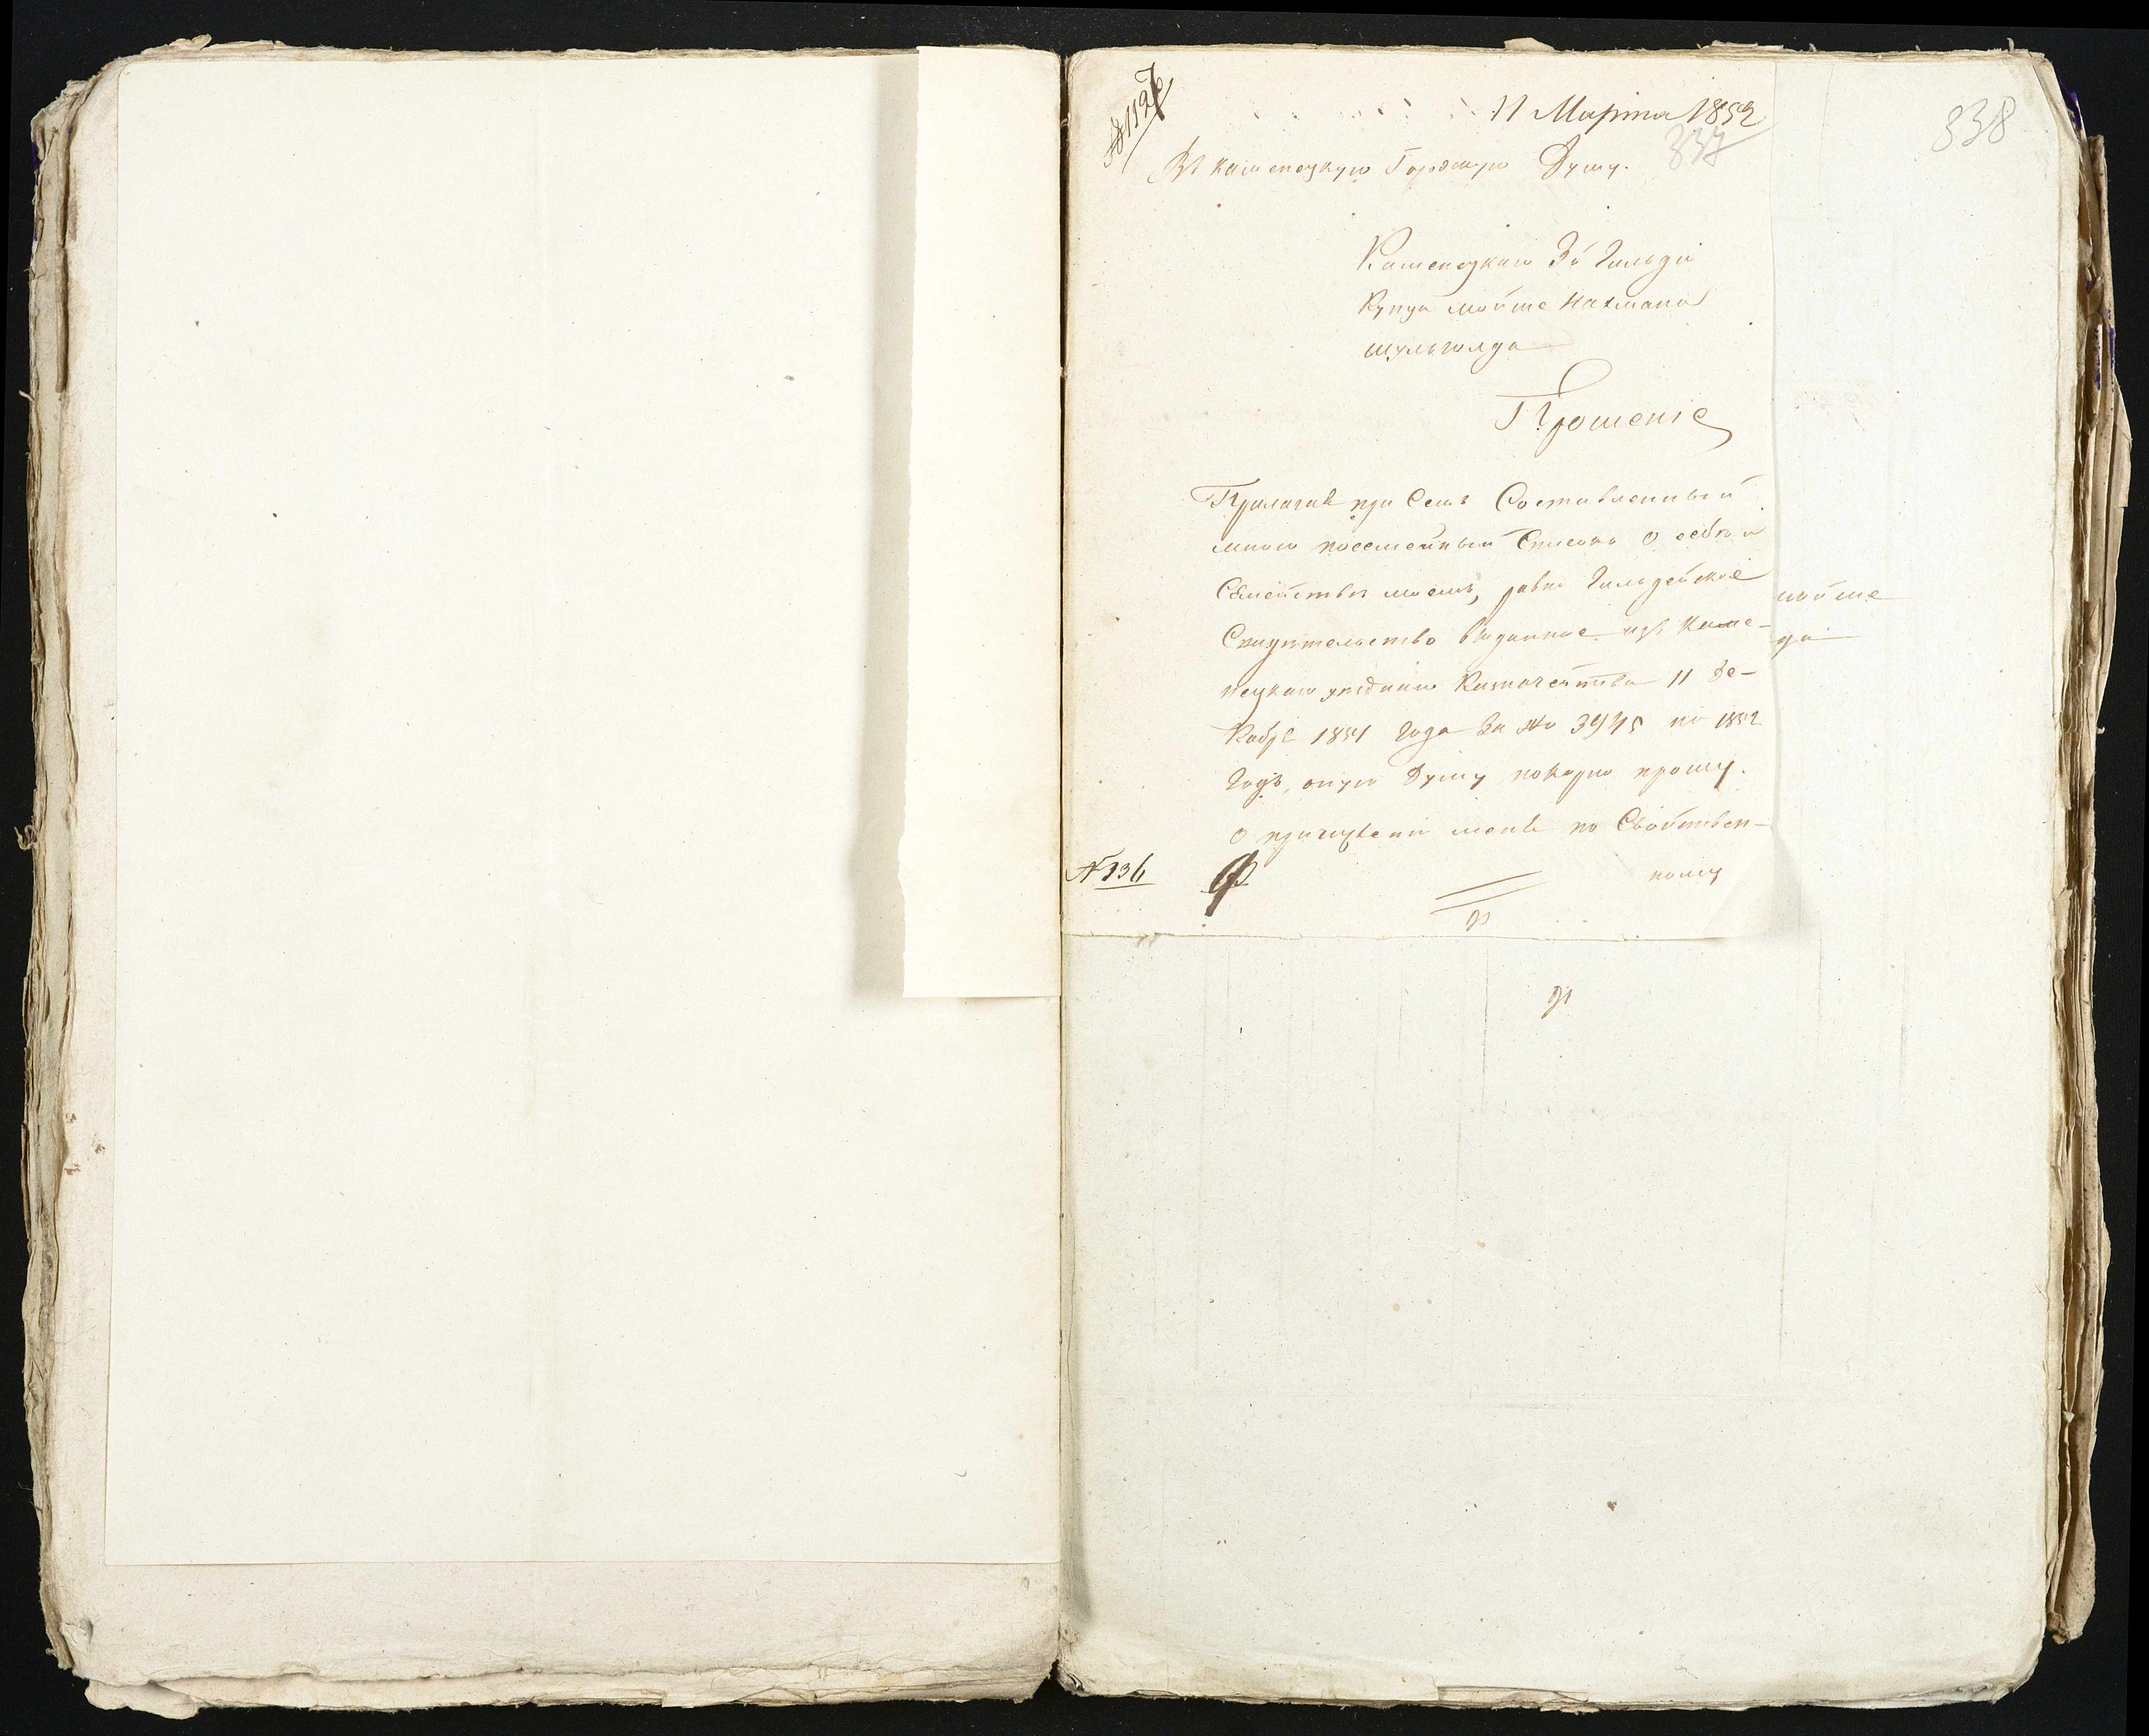 № 1127
11 Марта 1852
337
338
Въ каменецкую Городскую Думу.
Каменецкаго 3й Гильдіи
Купца мойше Нахмана
шульголда
Прошеніе
Прилагая при Семъ Составленный
мною посемейный Списокъ О себѣ и
Семействѣ моемъ, равно Гильдейское
Свидѣтельство выданное изъ Каме-
нецкаго уѣзднаго Казначейства 11 де-
Кабря 1851 Года За № 3975 на 1852
Годъ, оную Думу покорно прошу.
О причисленіи меня по Свойствен-
ному
№ 136
мойше
да